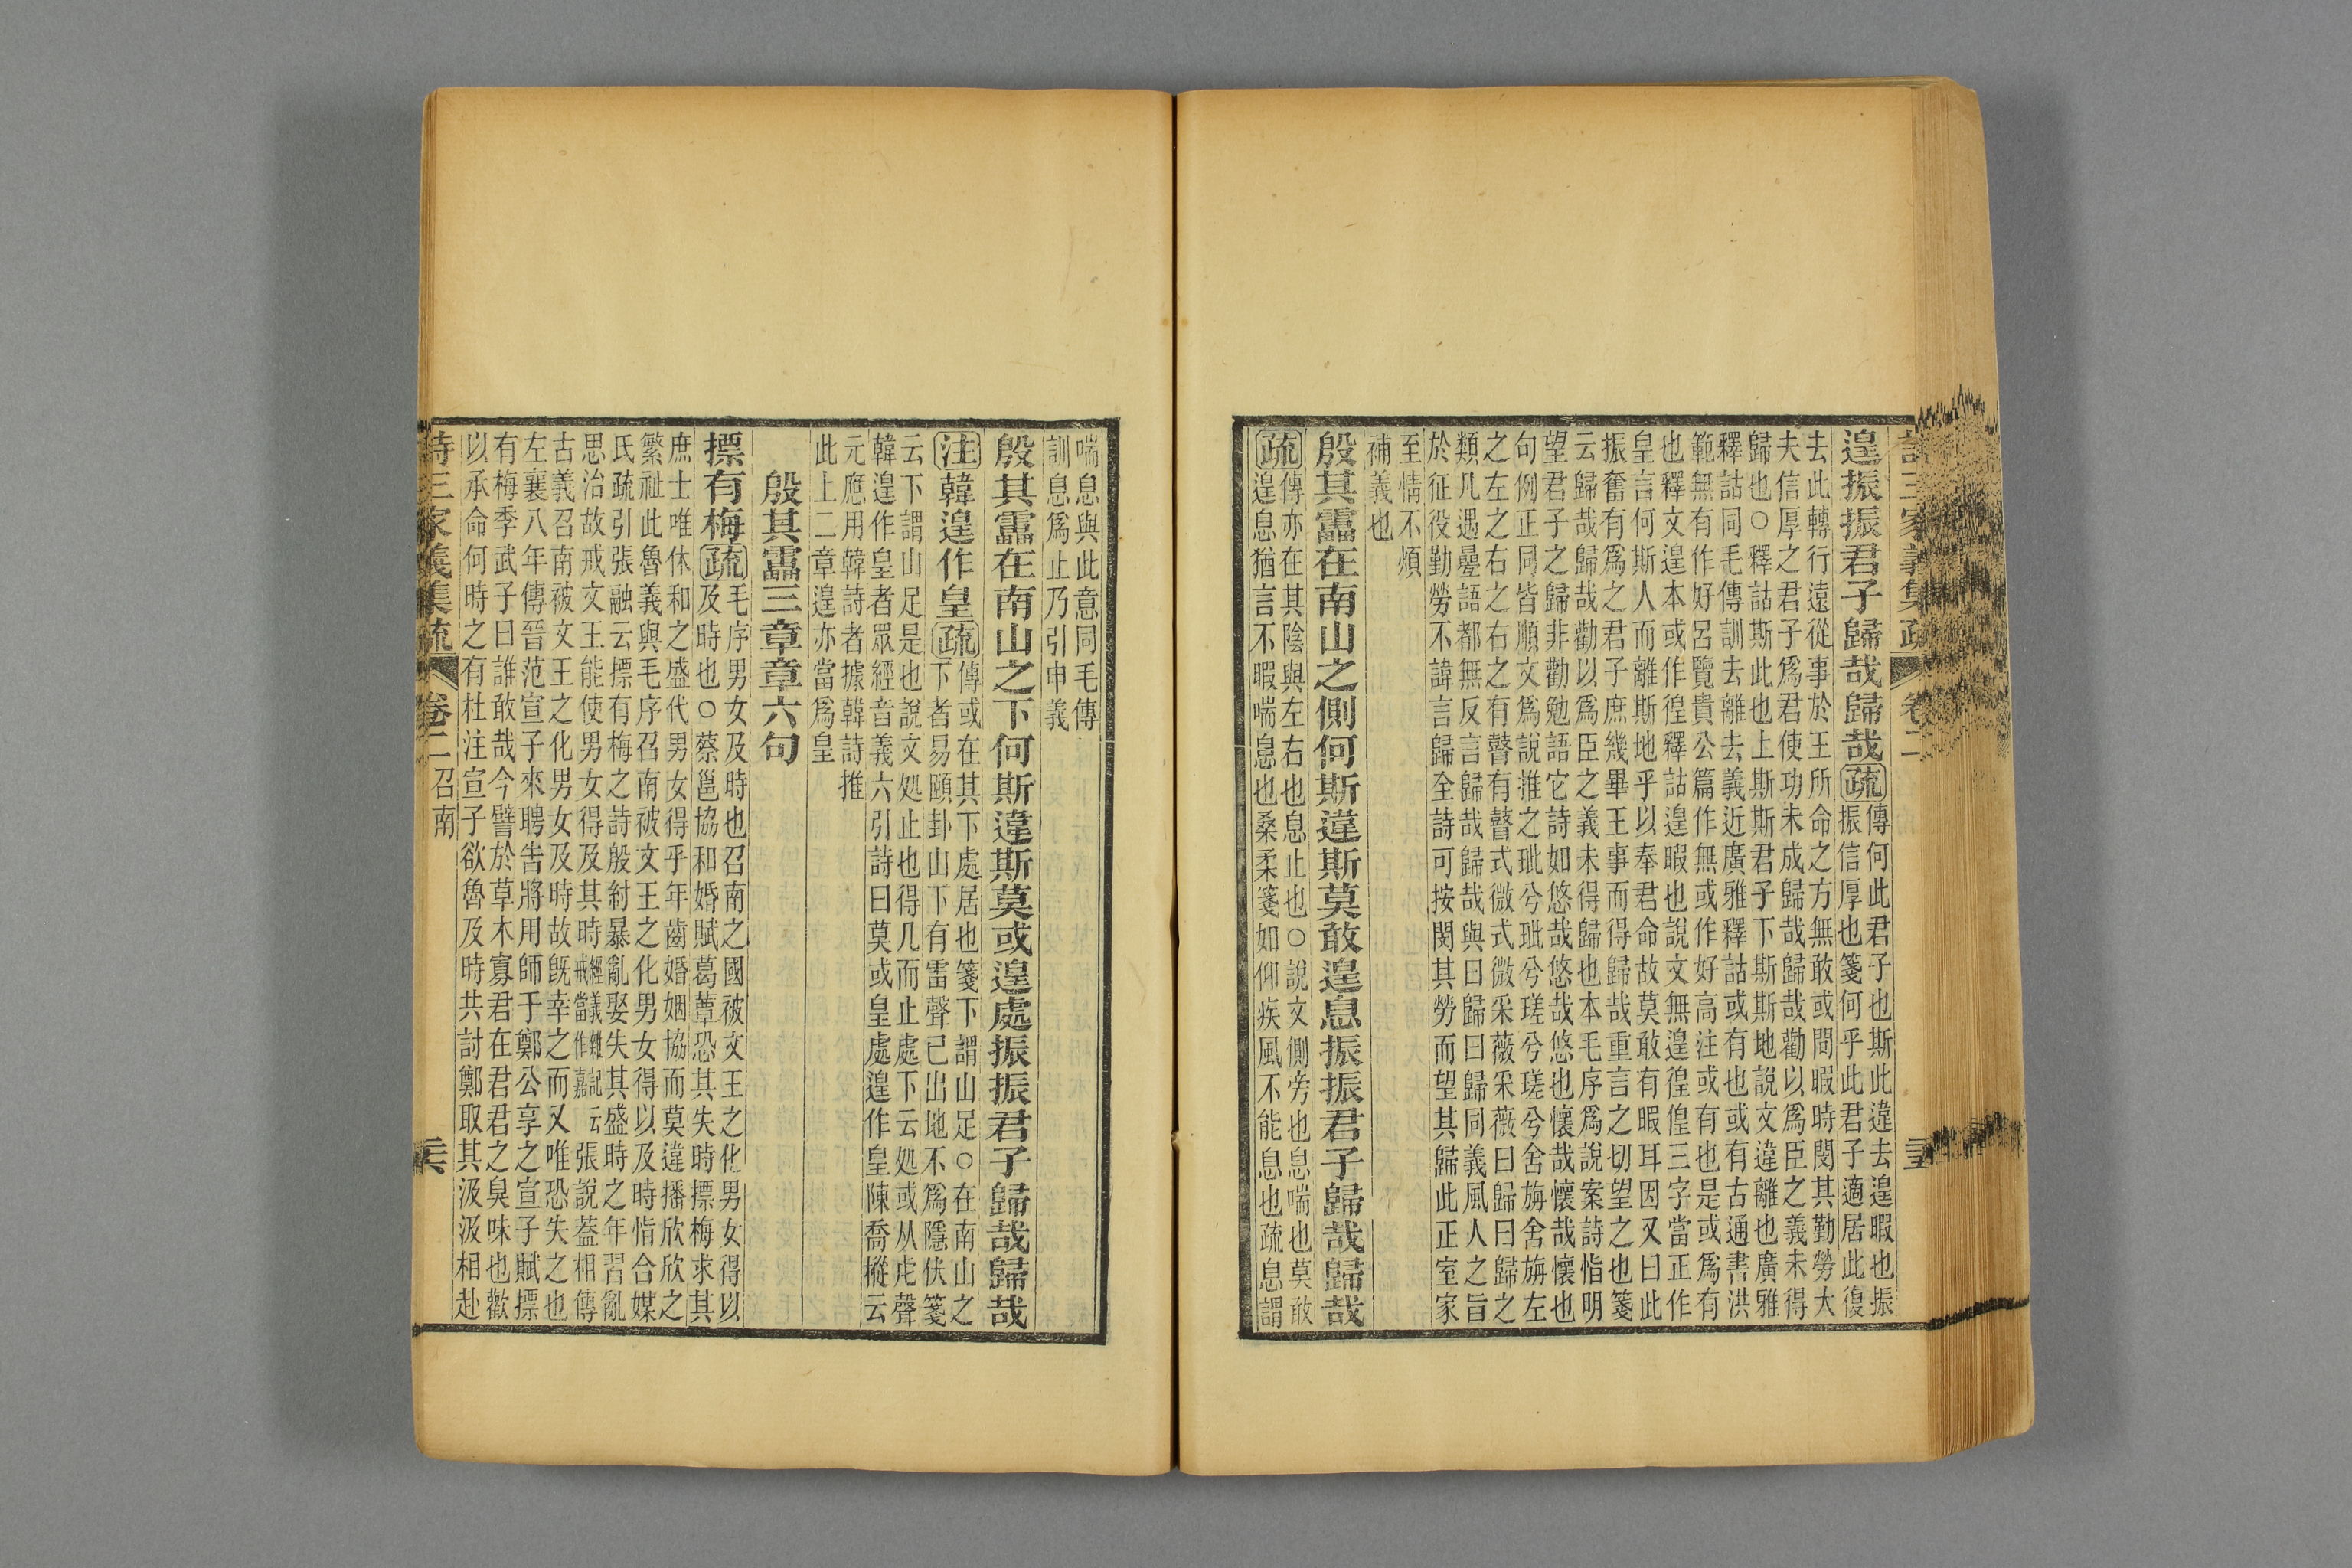 詩三家義集疏 卷二
遑振振君子歸哉歸哉疏傳何此君子也斯此違去遑暇也振
振信厚也箋何乎此君子適居此復
去此轉行遠從事於王所命之方無敢或閒暇時閔其勤勞大
夫信厚之君子爲君使功未成歸哉歸哉勸以爲臣之義未得
歸也○釋詁斯此也上斯斯君子下斯斯地說文違離也廣雅
釋詁同毛傳訓去離去義近廣雅釋詁或有也或有古通書洪
範無有作好呂覽貴公篇作無或作好高注或有也是或爲有
也釋文遑本或作徨釋詁遑暇也說文無遑徨偟三字當正作
皇言何斯人而離斯地乎以奉君命故莫敢有暇耳因又曰此
振奮有爲之君子庶幾畢王事而得歸哉重言之切望之也箋
云歸哉歸哉勸以爲臣之義未得歸也本毛序爲說案詩恉明
望君子之歸非勸勉語它詩如悠哉悠哉悠也懷哉懷哉懷也
句例正同皆順文爲說推之玼兮玼兮瑳兮瑳兮舍旃舍旃左
之左之右之右之有瞽有瞽式微式微采薇采薇曰歸曰歸之
類凡遇疊語都無反言歸哉歸哉與曰歸曰歸同義風人之旨
於征役勤勞不諱言歸全詩可按閔其勞而望其歸此正室家
至情不煩
補義也
殷其靁在南山之側何斯違斯莫敢遑息振振君子歸哉歸哉
疏傳亦在其陰與左右也息止也○說文側旁也息喘也莫敢
遑息猶言不暇喘息也桑柔箋如仰疾風不能息也疏息謂
喘息與此意同毛傳
訓息爲止乃引申義
殷其靁在南山之下何斯違斯莫或遑處振振君子歸哉歸哉
注韓遑作皇疏傳或在其下處居也箋下謂山足○在南山之
下者易頤卦山下有雷聲已出地不爲隱伏箋
云下謂山足是也說文処止也得几而止處下云処或从虍聲
韓遑作皇者眾經音義六引詩曰莫或皇處遑作皇陳喬樅云
元應用韓詩者據韓詩推
此上二章遑亦當爲皇
殷其靁三章章六句
摽有梅疏毛序男女及時也召南之國被文王之化男女得以
及時也○蔡邕協和婚賦葛蕈恐其失時摽梅求其
庶士唯休和之盛代男女得乎年齒婚姻協而莫違播欣欣之
繁祉此魯義與毛序召南被文王之化男女得以及時恉合媒
氏疏引張融云摽有梅之詩殷紂暴亂娶失其盛時之年習亂
思治故戒文王能使男女得及其時經義雜記云戒當作嘉張說葢相傳
古義召南被文王之化男女及時故既幸之而又唯恐失之也
左襄八年傳晉范宣子來聘告將用師于鄭公享之宣子賦摽
有梅季武子曰誰敢哉今譬於草木寡君在君君之臭味也歡
以承命何時之有杜注宣子欲魯及時共討鄭取其汲汲相赴
詩三家義集疏 卷二 召南